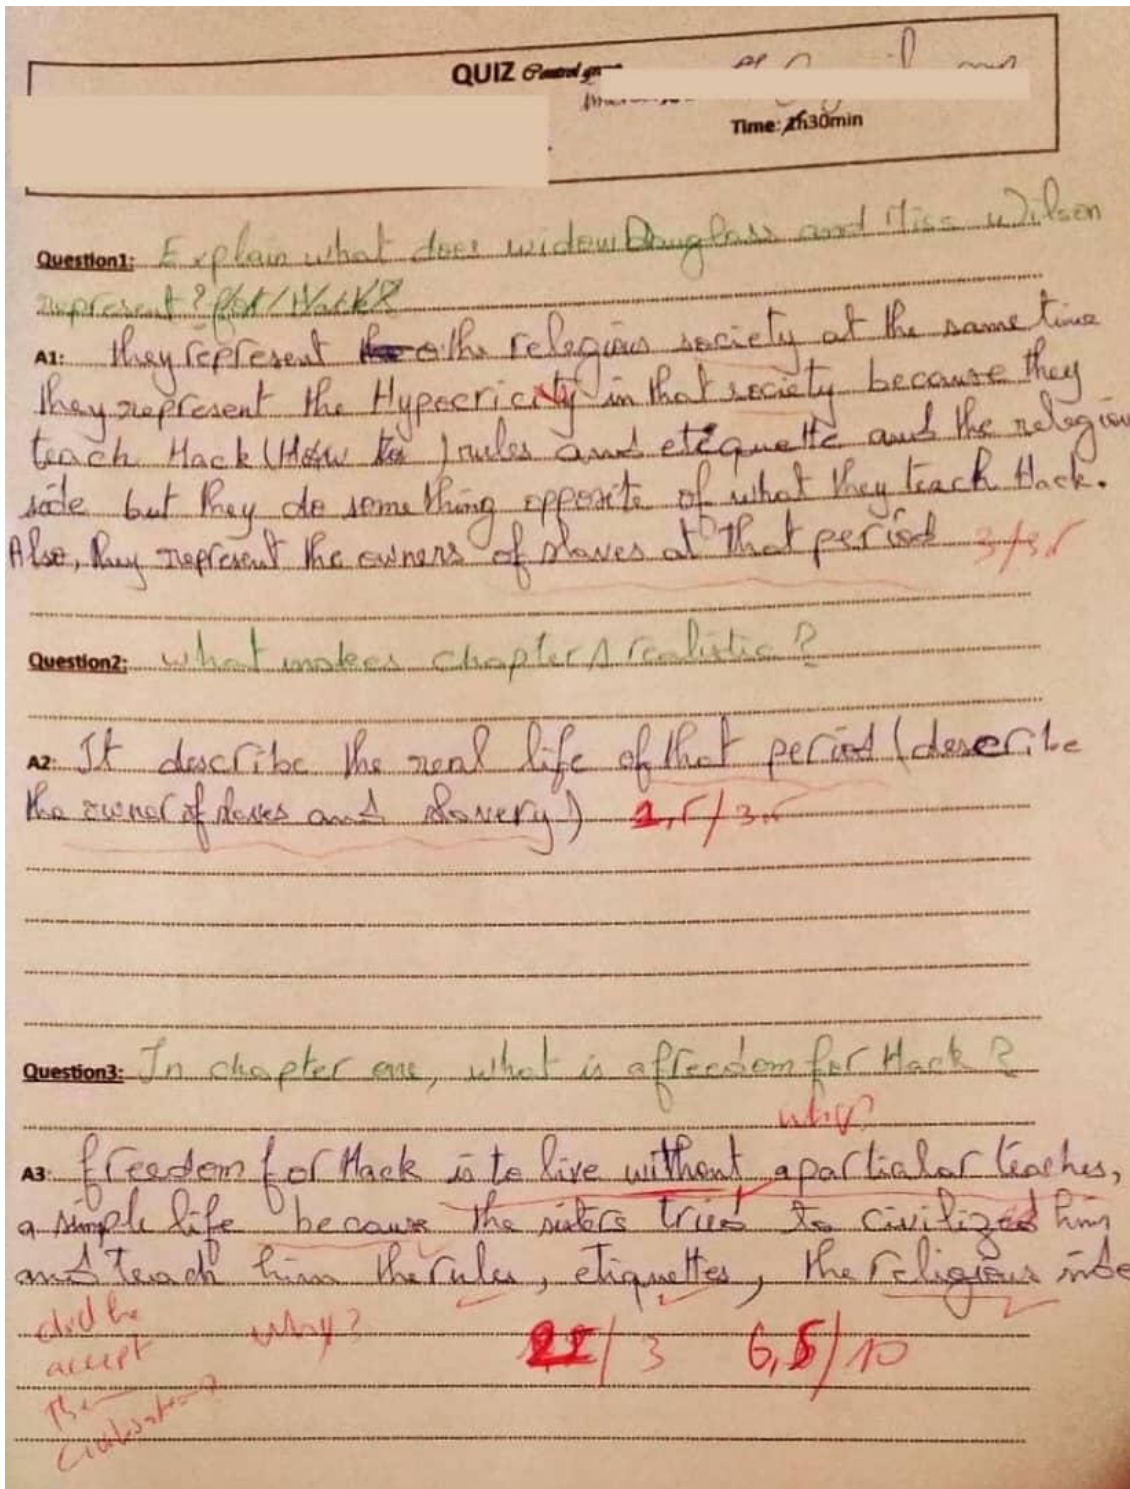 QUIZ Control
Time: 1h30min
Question1: Explain what does widow Douglass and Miss Wilson
represent?
A1: they represent the relegious society at the same time
they represent the Hypocricity in that society because they
teach Hack (How to) rules and etiquette and the relegion
side but they do something opposite of what they teach Hack.
Also, they represent the owners of slaves at that period 3/3,5
Question2: what makes chapter 1 realistic?
A2: It describe the real life of that period (describe
the owner of slaves and slavery) 1,5/3.5
Question3: In chapter one, what is a freedom for Hack?
why?
A3: freedom for Hack is to live without a particular teaches,
a simple life because the sisters tried to civilized him
and teach him the rules, etiquettes, the religious side
did he
accept
why?
/ 3
6,5/10
The
civilisation?